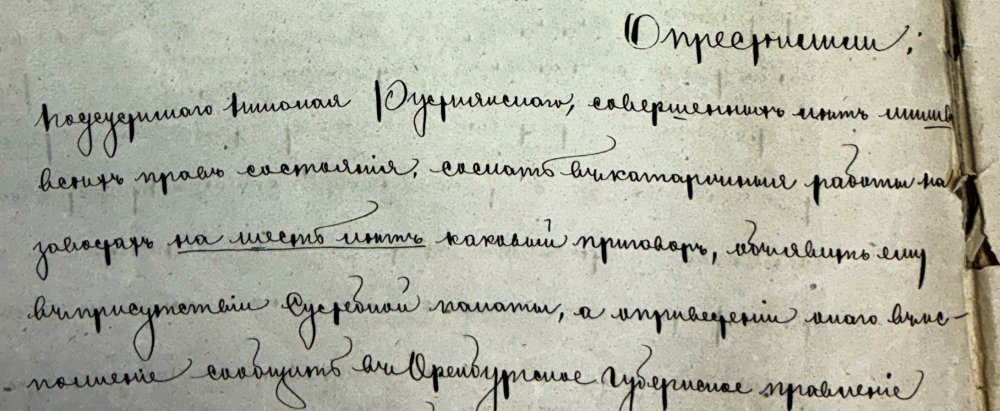 Опредѣлили:
подсудимаго Николая Руснянскаго, совершенныхъ лѣтъ лишивъ
всѣхъ правъ состоянія, сослать въ каторжныя работы на
заводахъ на шесть лѣтъ каковый приговоръ, объявить ему
въ присутствіи Судебной палаты, а о приведеніи онаго въ ис-
полненіе сообщить въ Оренбургское Губернское правленіе